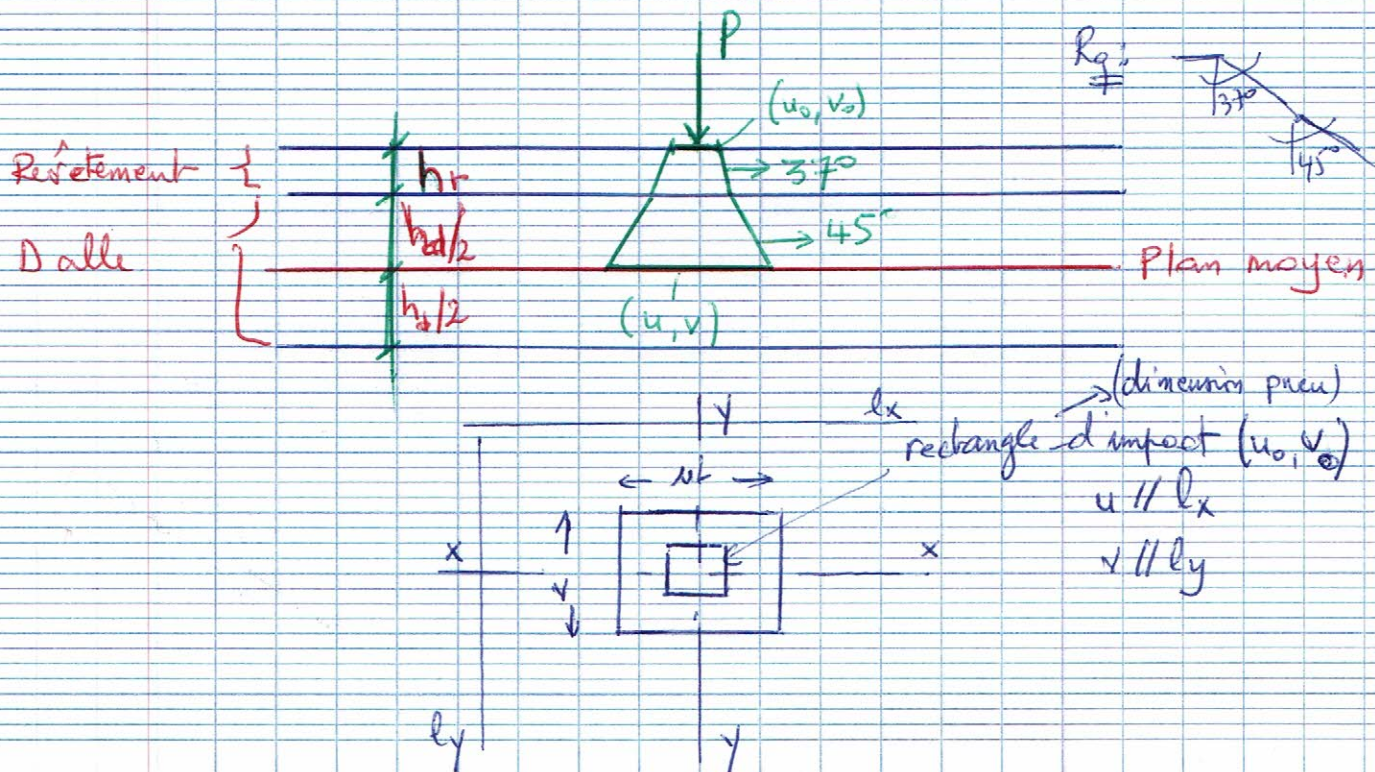 P
Rq:
37°
45°
(u₀, v₀)
Revêtement {
hr
37°
hd/2
45°
Dalle
Plan moyen
hd/2
(u, v)
(dimension pneu)
y
lx
rectangle d'impact (u₀, v₀)
u // lx
x
x
v // ly
v
ly
y